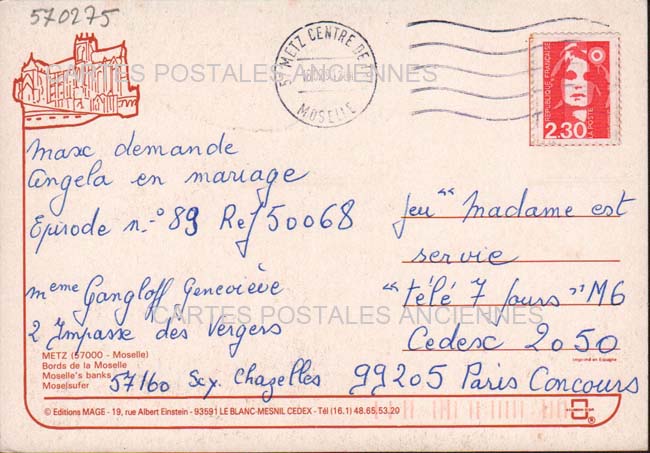 570275
57 METZ CENTRE DE
MOSELLE
REPUBLIQUE FRANÇAISE
2.30
LA POSTE
CARTES POSTALES ANCIENNES
maxc demande
Angela en mariage
Episode n-° 89 Ref 50068
meme Gangloff Geneviève
2 Impasse des Vergers
57160 Scy. Chazelles
jeu "Madame est
servie
"télé 7 jours" M6
Cedesc 2050
99205 Paris Concours
CARTES POSTALES ANCIENNES
METZ (57000 - Moselle)
Bords de la Moselle
Moselle's banks
Moselsufer
Imprimé en Espagne
© Editions MAGE - 19, rue Albert Einstein - 93591 LE BLANC-MESNIL CEDEX - Tél (16.1) 48.65.53.20